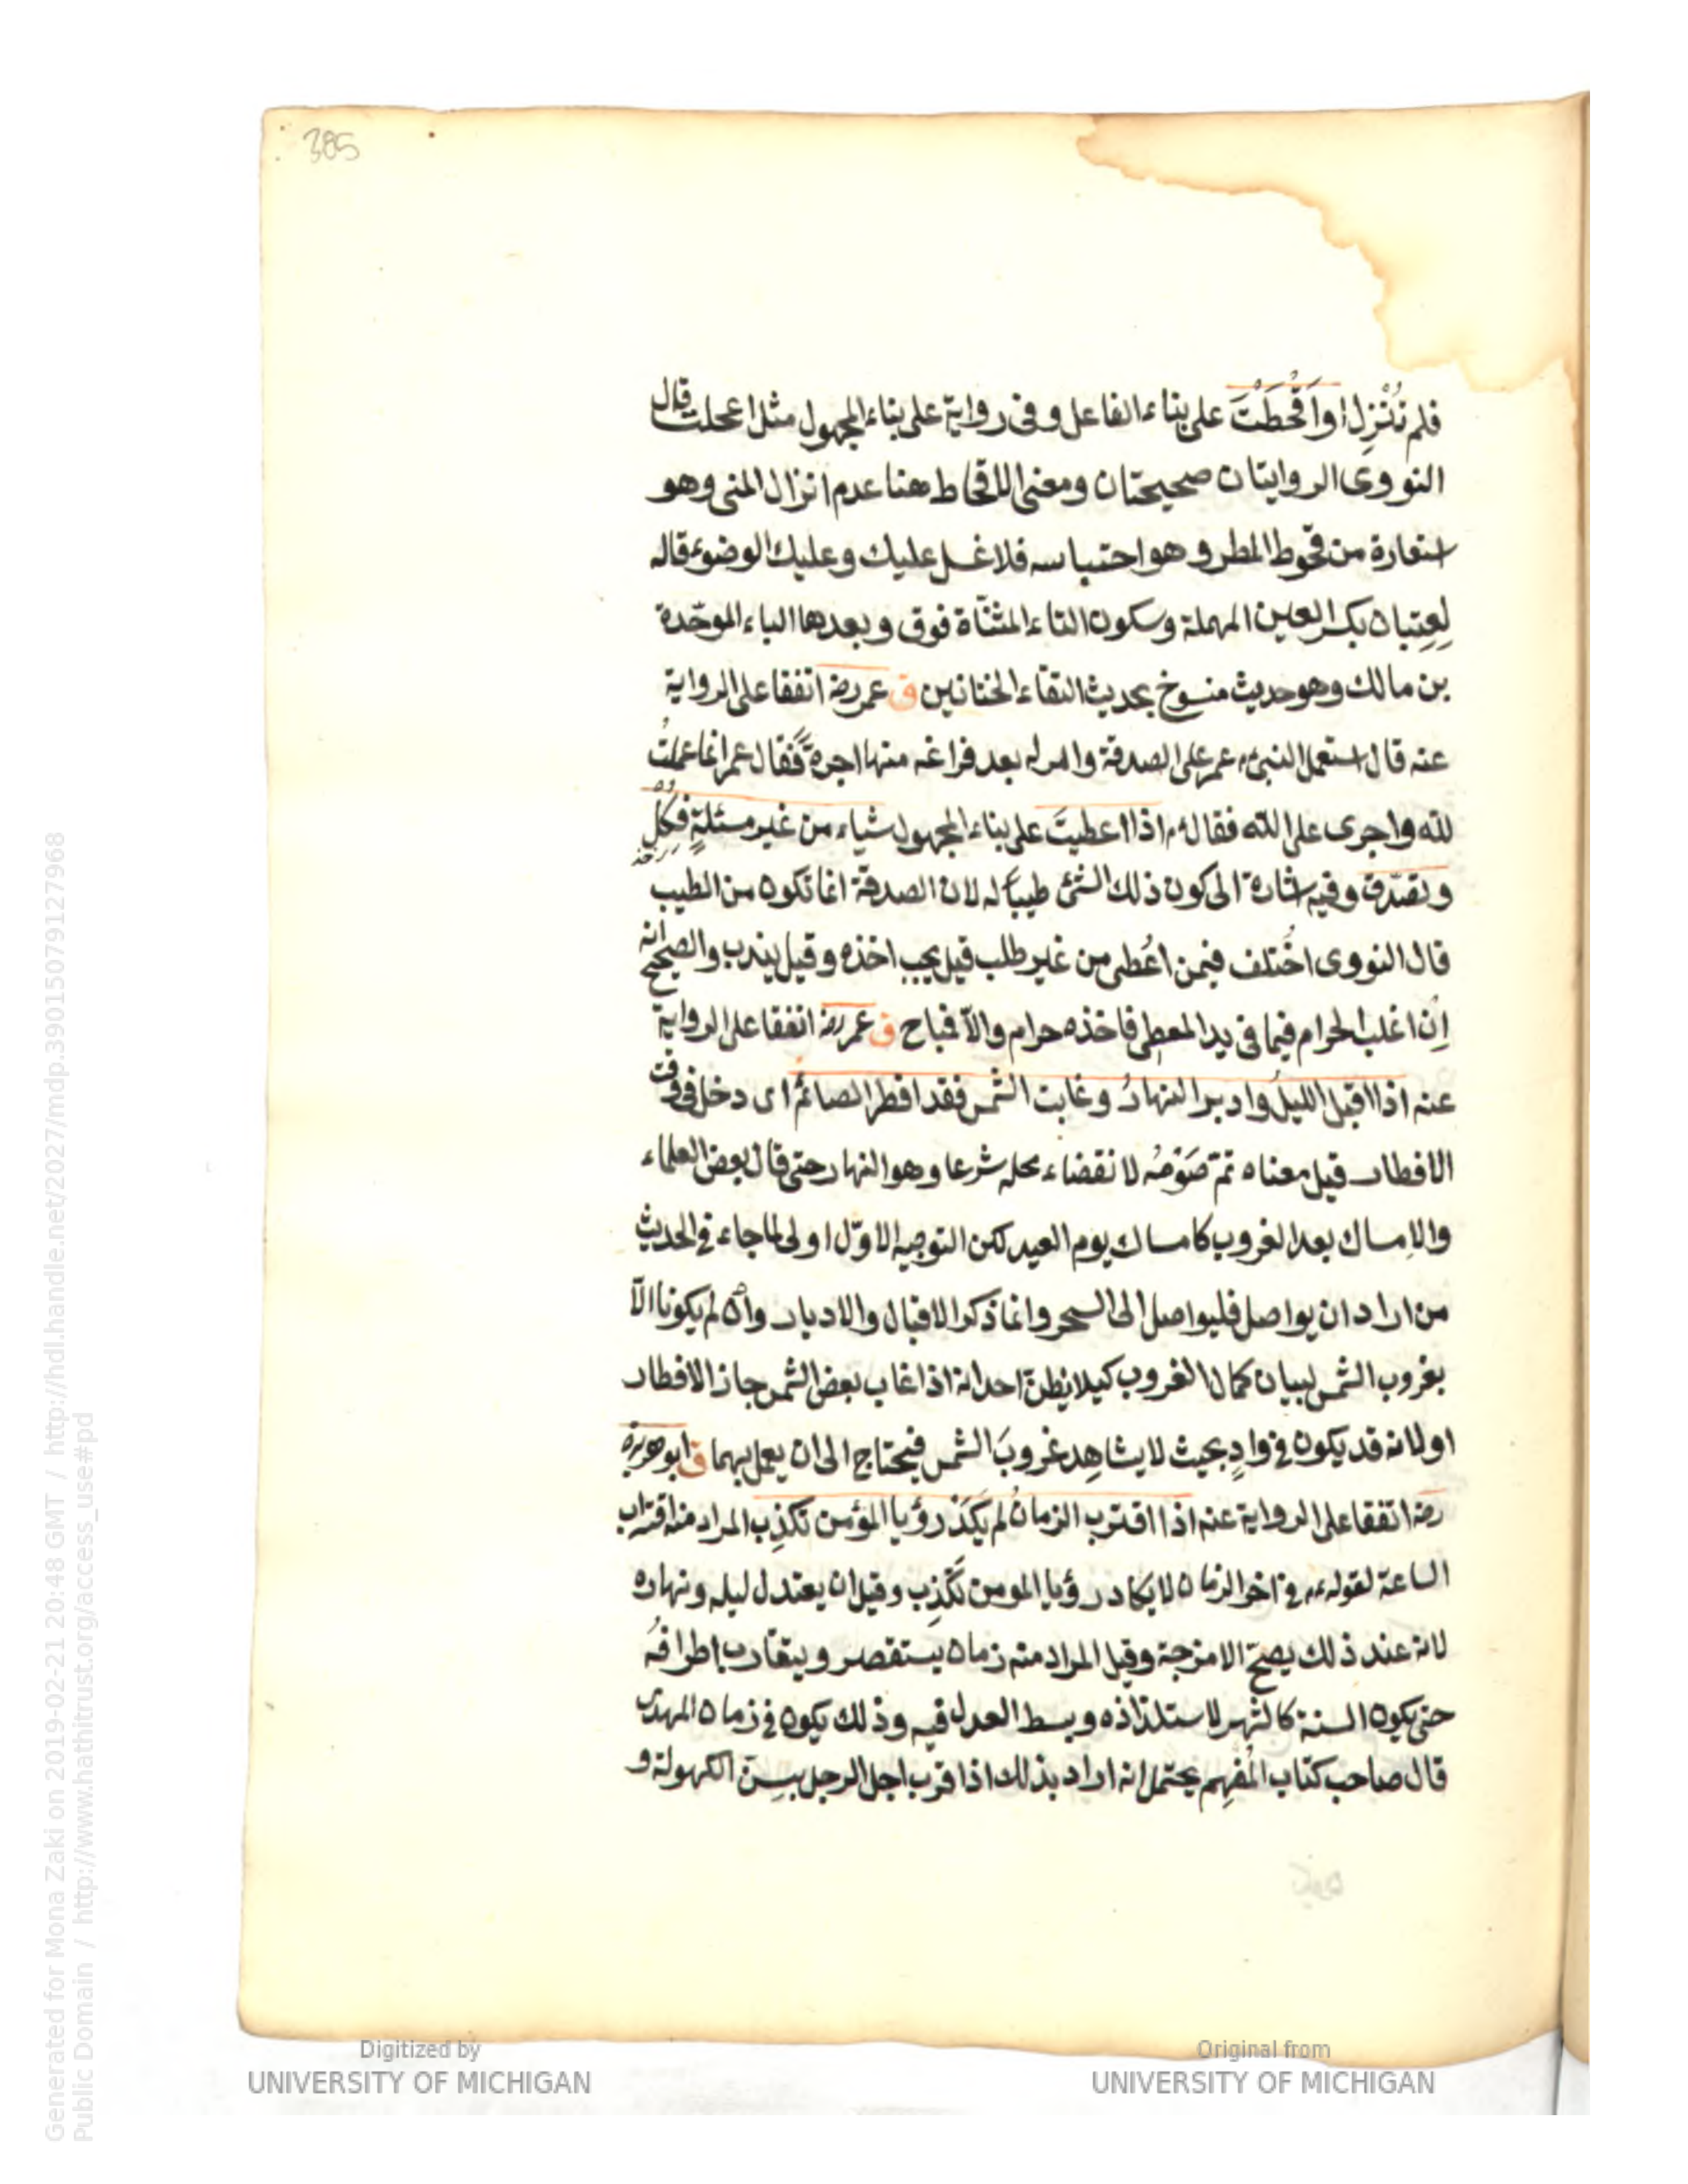 385
فلم تُنْزِل او اَقْحَطْتَ على بناء الفاعل وفى رواية على بناء المجهول مثل اعجلت قال
النووى الروايتان صحيحتان ومعنى الاقحاط هنا عدم انزال المنى وهو
استعارة من قحوط المطر وهو احتباسه فلا غسل عليك وعليك الوضوء قاله
لِعِتبان بكسر العين المهملة وسكون التاء المثنّاة فوق وبعدها الباء الموحّدة
بن مالك وهو حديث منسوخ بحديث التقاء الختانين ق عمر رضه اتفقا على الرواية
عنه قال استعمل النبىء م عمر على الصدقة وامر له بعد فراغه منها اجرة فقال عمر انما عملتُ
لله واجرى على الله فقال م اذا اعطيتَ على بناء المجهول شياء من غير مسئلةٍ فكُلْ
وتصدّق وفيه اشارة الى كون ذلك الشئ طيبا له لان الصدقة انما تكون من الطيب
قال النووى اخُتلف فيمن اعُطى من غير طلب قيل يجب اخذه وقيل يندب والصحيح انه
اِن اغلب الحرام فيما فى يد المعطى فاخذه حرام والاّ فمباح ق عمر رضه اتفقا على الرواية
عنه اذا اقبل الليلُ وادبر النهارُ وغابت الشمس فقد افطر الصائم اى دخل فى وقت
الافطار قيل معناه تمّ صَوْمُه لانقضاء محله شرعا وهو النهار حتى قال بعض العلماء
والامساك بعد الغروب كامساك يوم العيد لكن التوجيه الاوّل اولى لما جاء فى الحديث
من اراد ان يواصل فليواصل الى السحر وانما ذكر الاقبال والادبار وان لم يكونا الاّ
بغروب الشمس لبيان كمال الغروب كيلا يظنّ احد انه اذا غاب بعض الشمس جاز الافطار
او لانه قد يكون فى وادٍ بحيث لا يشاهِد غروبَ الشمس فيحتاج الى ان يعمل بهما ق ابو هريرة
رضه اتفقا على الرواية عنه اذا اقترب الزمانُ لم يَكَد رؤيا المؤمن تكذِب المراد منه اقتراب
الساعة لقوله عم فى اخر الزمان لا يكاد رؤيا المومن تَكْذِب وقيل ان يعتدل ليله ونهاره
لانه عند ذلك يصحّ الامزجة وقيل المراد منه زمان يستقصر ويتقارب اطرافُه
حتى يكون السنة كالشهر لاستلذاذه وبسط العدل فيه وذلك يكون فى زمان المهدى
قال صاحب كتاب المُفْهِم يحتمل انه اراد بذلك اذا قرب اجل الرجل بسِنّ الكهولة و
Digitized by
UNIVERSITY OF MICHIGAN
Original from
UNIVERSITY OF MICHIGAN
Generated for Mona Zaki on 2019-02-21 20:48 GMT / http://hdl.handle.net/2027/mdp.39015079127968
Public Domain / http://www.hathitrust.org/access_use#pd